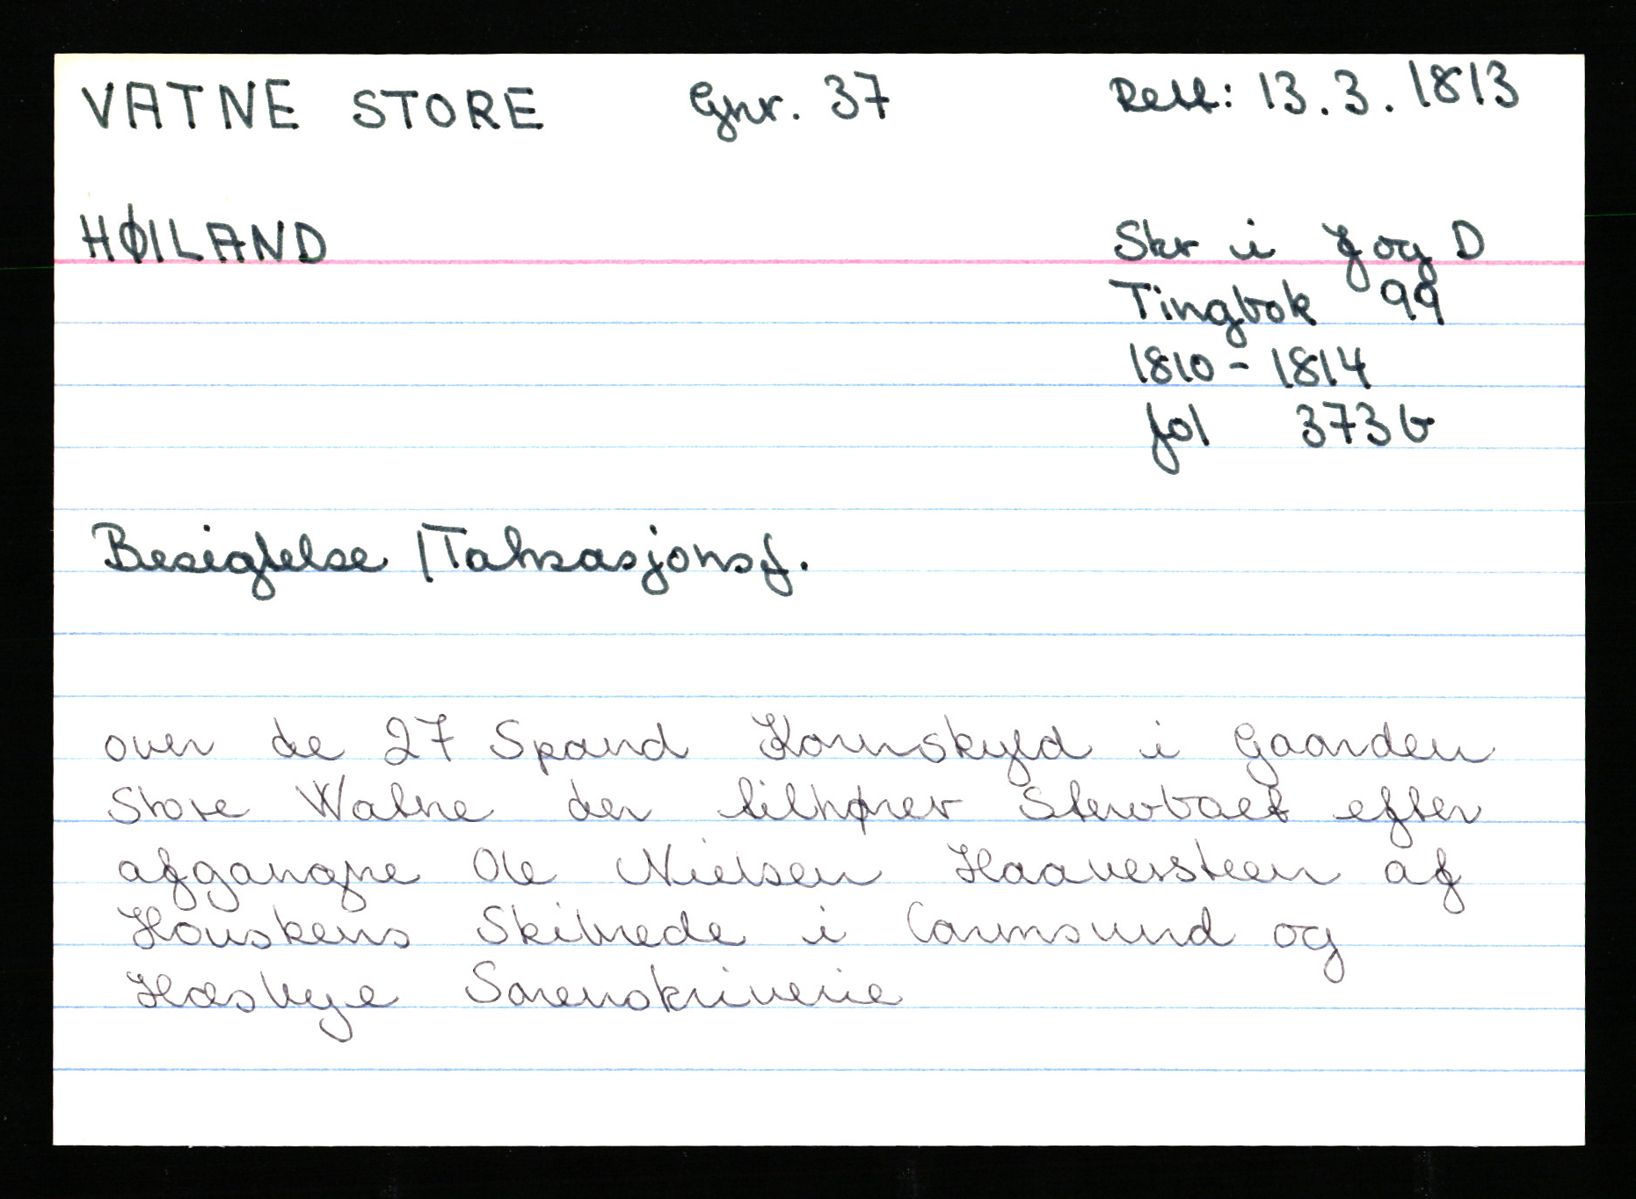 VATNE STORE Gnr. 37 Rett: 13.3.1813
HØILAND Skr i J og D
Tingbok 99
1810 - 1814
fol 373 b
Besigtelse / Taksasjonsf.
over de 27 Spand Kornskyld i Gaarden
Store Watne der tilhører Sterboet efter
afgangne Ole Nielsen Haaversteen af
Houskens Skibrede i Carmsund og
Hesbye Sorenskriverie